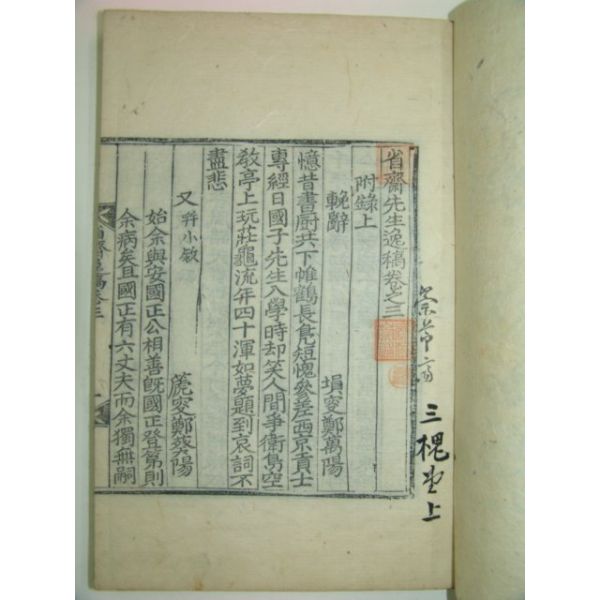 省齋先生逸稿卷之三
附錄上
輓辭
塤叟鄭萬陽
憶昔書廚共下帷鶴長鳧短愧參差西京貢士
專經日國子先生入學時却笑人間爭衛島空
敎亭上玩莊龜流年四十渾如夢題到哀詞不
盡悲
又 幷小敘
篪叟鄭葵陽
始余與安國正公相善旣國正登第則
余病矣且國正有六丈夫而余獨無嗣
三槐堂上